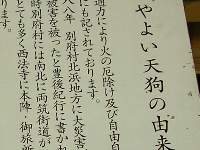 やよい天狗の由来
通力により火の厄除け及び自由自
にも記されております。
八年 別府村北浜地方に大災害
被害を被ったと豊後紀行に書か
時別府村には南北に両筑街道が
とても多く西法寺に本陣・御旅所
ります。